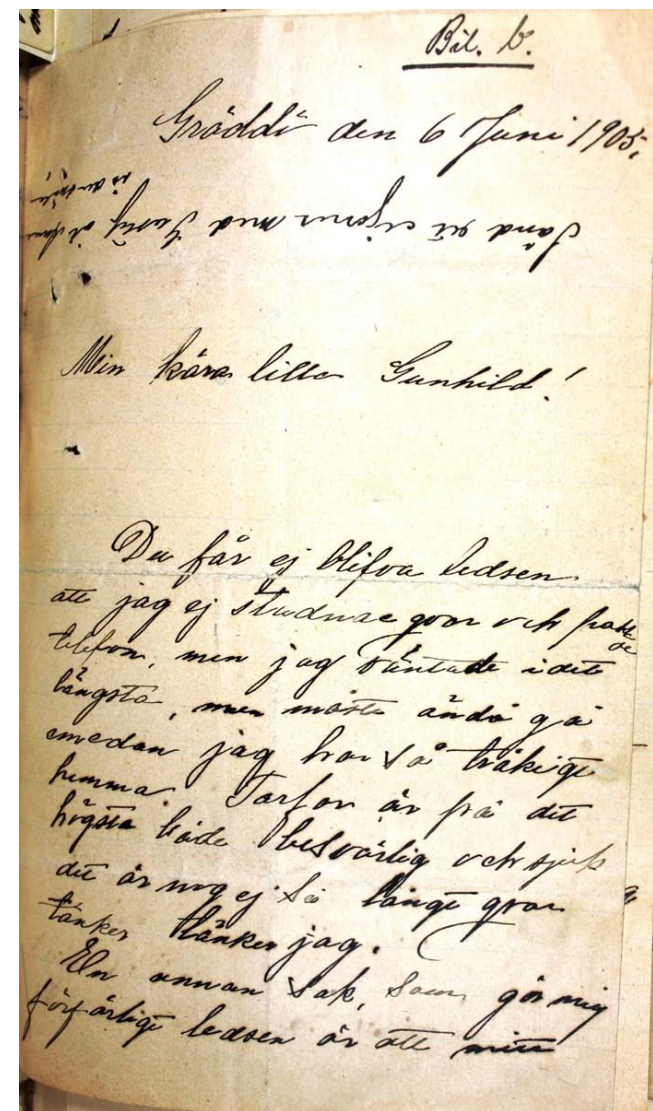 Bil. b.
Gräddö den 6 Juni 1905.
Sänd ut cigarrer med
Min kära lilla Gunhild!
Du får ej blifva ledsen
att jag ej stadnae qvar och passade
telefon, men jag väntade i det
längsta, men måste ändå gå
emedan jag har så tråkigt
hemma. Farfar är på det
högsta både besvärlig och sjuk
det är nog ej så länge qvar
tänker tänker jag.
En annan sak, som gör mig
förfärligt ledsen är att mitt